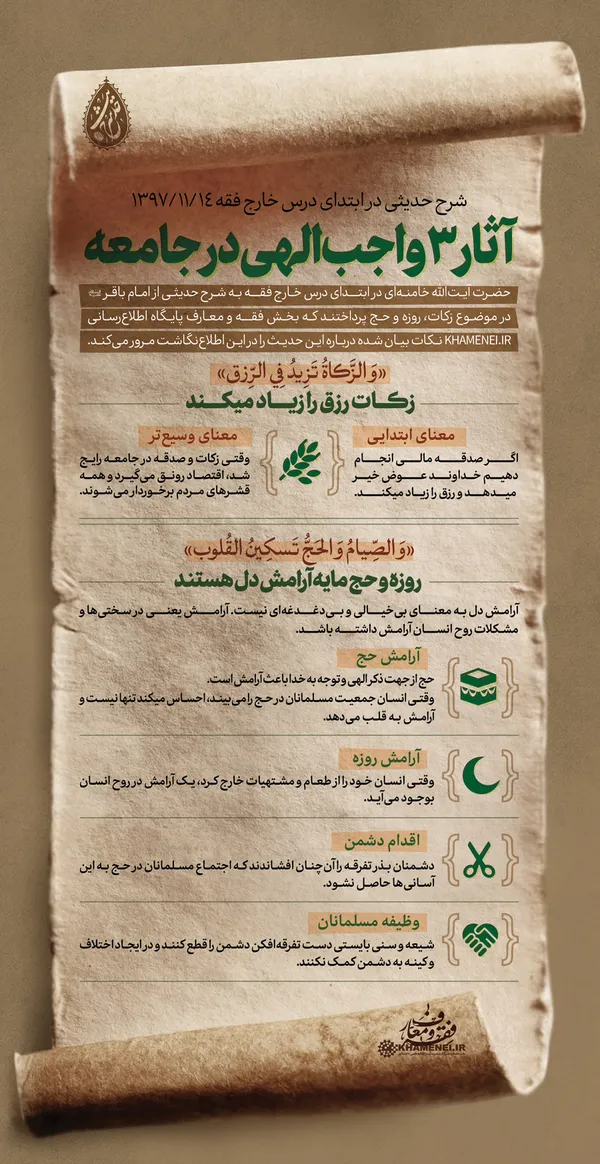 شرح حدیثی در ابتدای درس خارج فقه ۱۳۹۷/۱۱/۱۴
آثار ۳ واجب الهی در جامعه
حضرت آیت‌الله خامنه‌ای در ابتدای درس خارج فقه به شرح حدیثی از امام باقر
در موضوع زکات، روزه و حج پرداختند که بخش فقه و معارف پایگاه اطلاع‌رسانی
KHAMENEI.IR نکات بیان شده درباره این حدیث را در این اطلاع‌نگاشت مرور می‌کند.
«وَ الزَّکاةُ تَزیدُ فِی الرِّزق»
زکات رزق را زیاد میکند
معنای ابتدایی
اگر صدقه مالی انجام
دهیم خداوند عوض خیر
میدهد و رزق را زیاد میکند.
معنای وسیع‌تر
وقتی زکات و صدقه در جامعه رایج
شد، اقتصاد رونق می‌گیرد و همه
قشرهای مردم برخوردار می‌شوند.
«وَ الصِّیامُ وَ الحَجُّ تَسکینُ القُلوب»
روزه و حج مایه آرامش دل هستند
آرامش دل به معنای بی‌خیالی و بی‌دغدغه‌ای نیست. آرامش یعنی در سختی‌ها و
مشکلات روح انسان آرامش داشته باشد.
آرامش حج
حج از جهت ذکر الهی و توجه به خدا باعث آرامش است.
وقتی انسان جمعیت مسلمانان در حج را می‌بیند، احساس میکند تنها نیست و
آرامش به قلب می‌دهد.
آرامش روزه
وقتی انسان خود را از طعام و مشتهیات خارج کرد، یک آرامش در روح انسان
بوجود می‌آید.
اقدام دشمن
دشمنان بذر تفرقه را آن‌چنان افشاندند که اجتماع مسلمانان در حج به این
آسانی‌ها حاصل نشود.
وظیفه مسلمانان
شیعه و سنی بایستی دست تفرقه‌افکن دشمن را قطع کنند و در ایجاد اختلاف
و کینه به دشمن کمک نکنند.
فقه و معارف
KHAMENEI.IR